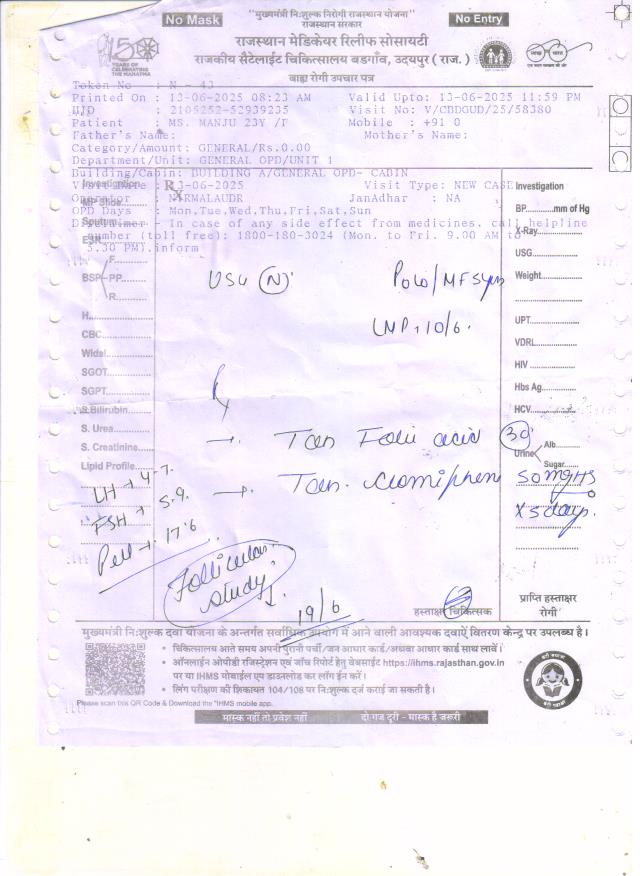 No Mask
"मुख्यमंत्री निःशुल्क निरोगी राजस्थान योजना"
No Entry
राजस्थान सरकार
राजस्थान मेडिकेयर रिलीफ सोसायटी
राजकीय सैटेलाईट चिकित्सालय बडगाँव, उदयपुर ( राज. )
बाह्य रोगी उपचार पत्र
150
YEARS OF
CELEBRATING
THE MAHATMA
Token No : N - 43
Printed On : 13-06-2025 08:23 AM Valid Upto: 13-06-2025 11:59 PM
: 2105252-52939235 Visit No: V/CBDGUD/25/58380
Patient : MS. MANJU 23Y /F Mobile : +91 0
Father's Name: Mother's Name:
Category/Amount: GENERAL/Rs.0.00
Department/Unit: GENERAL OPD/UNIT 1
Building/Cabin: BUILDING A/GENERAL OPD- CABIN
: 13-06-2025 Visit Type: NEW CASE
Operator JanAadhar : NA
OPD Days : Mon,Tue,Wed,Thu,Fri,Sat,Sun
Disclaimer - In case of any side effect from medicines, call helpline
number (toll free): 1800-180-3024 (Mon. to Fri. 9.00 AM to
5.30 PM).inform
Investigation
MP Slide
Sputum
F
BSP PP
R
H
CBC
Widal
SGOT
SGPT
S.Bilirubin
S. Urea
S. Creatinine
Lipid Profile
LH → 4.7
FSH → 5.9
17.6
USG (N)
LMP 10/6.
→ Tab Folic acid 30
→ Tab. Clomiphen 50mg HS
x5days.
Follicular
study
19/6
Investigation
BP.............mm of Hg
X-Ray
USG
Weight
UPT
VDRL
HIV
Hbs Ag
HCV
Urine
Alb
Sugar
हस्ताक्षर चिकित्सक
प्राप्ति हस्ताक्षर
रोगी
मुख्यमंत्री निःशुल्क दवा योजना के अन्तर्गत सर्वाधिक उपयोग में आने वाली आवश्यक दवाऐं वितरण केन्द्र पर उपलब्ध है।
• चिकित्सालय आते समय अपनी पुरानी पर्ची/जन आधार कार्ड/अथवा आधार कार्ड साथ लावें।
• ऑनलाईन ओपीडी रजिस्ट्रेशन एवं जाँच रिपोर्ट हेतु वेबसाईट https://ihms.rajasthan.gov.in
पर या IHMS मोबाईल एप डाउनलोड कर लॉग ईन करें।
• लिंग परीक्षण की शिकायत 104/108 पर निःशुल्क दर्ज कराई जा सकती है।
Please scan this QR Code & Download the "IHMS mobile app.
मास्क नहीं तो प्रवेश नहीं दो गज दूरी - मास्क है जरूरी